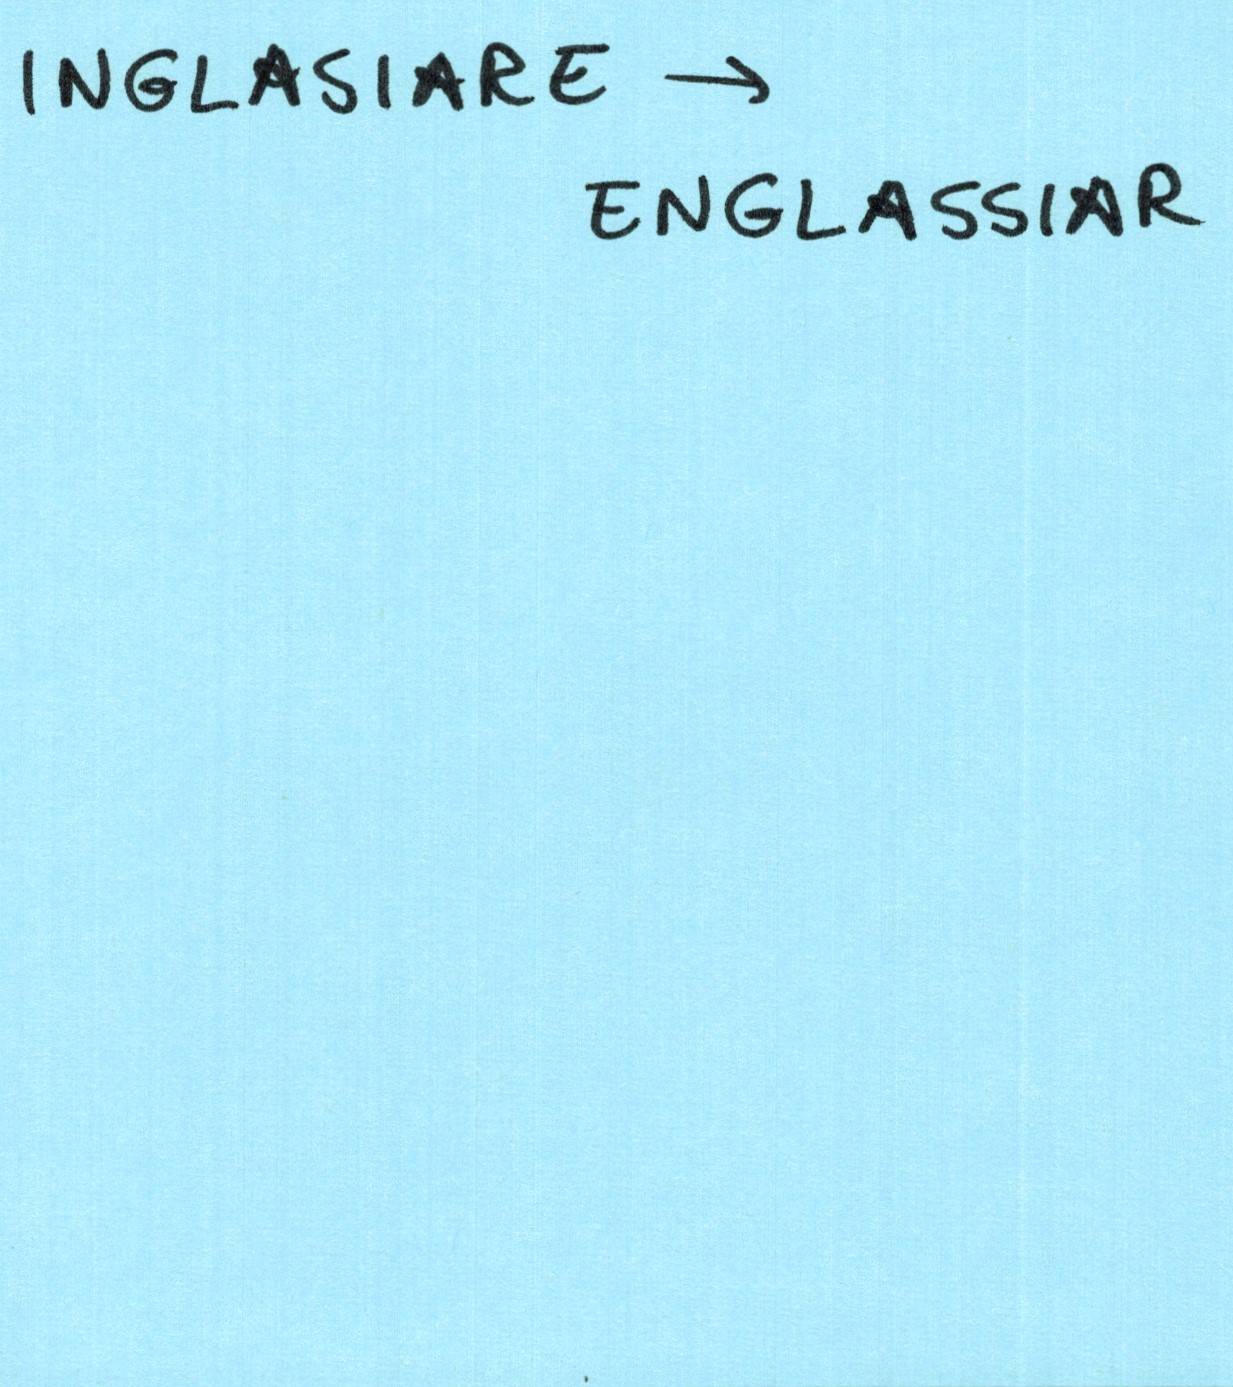 INGLASIARE →
ENGLASSIAR